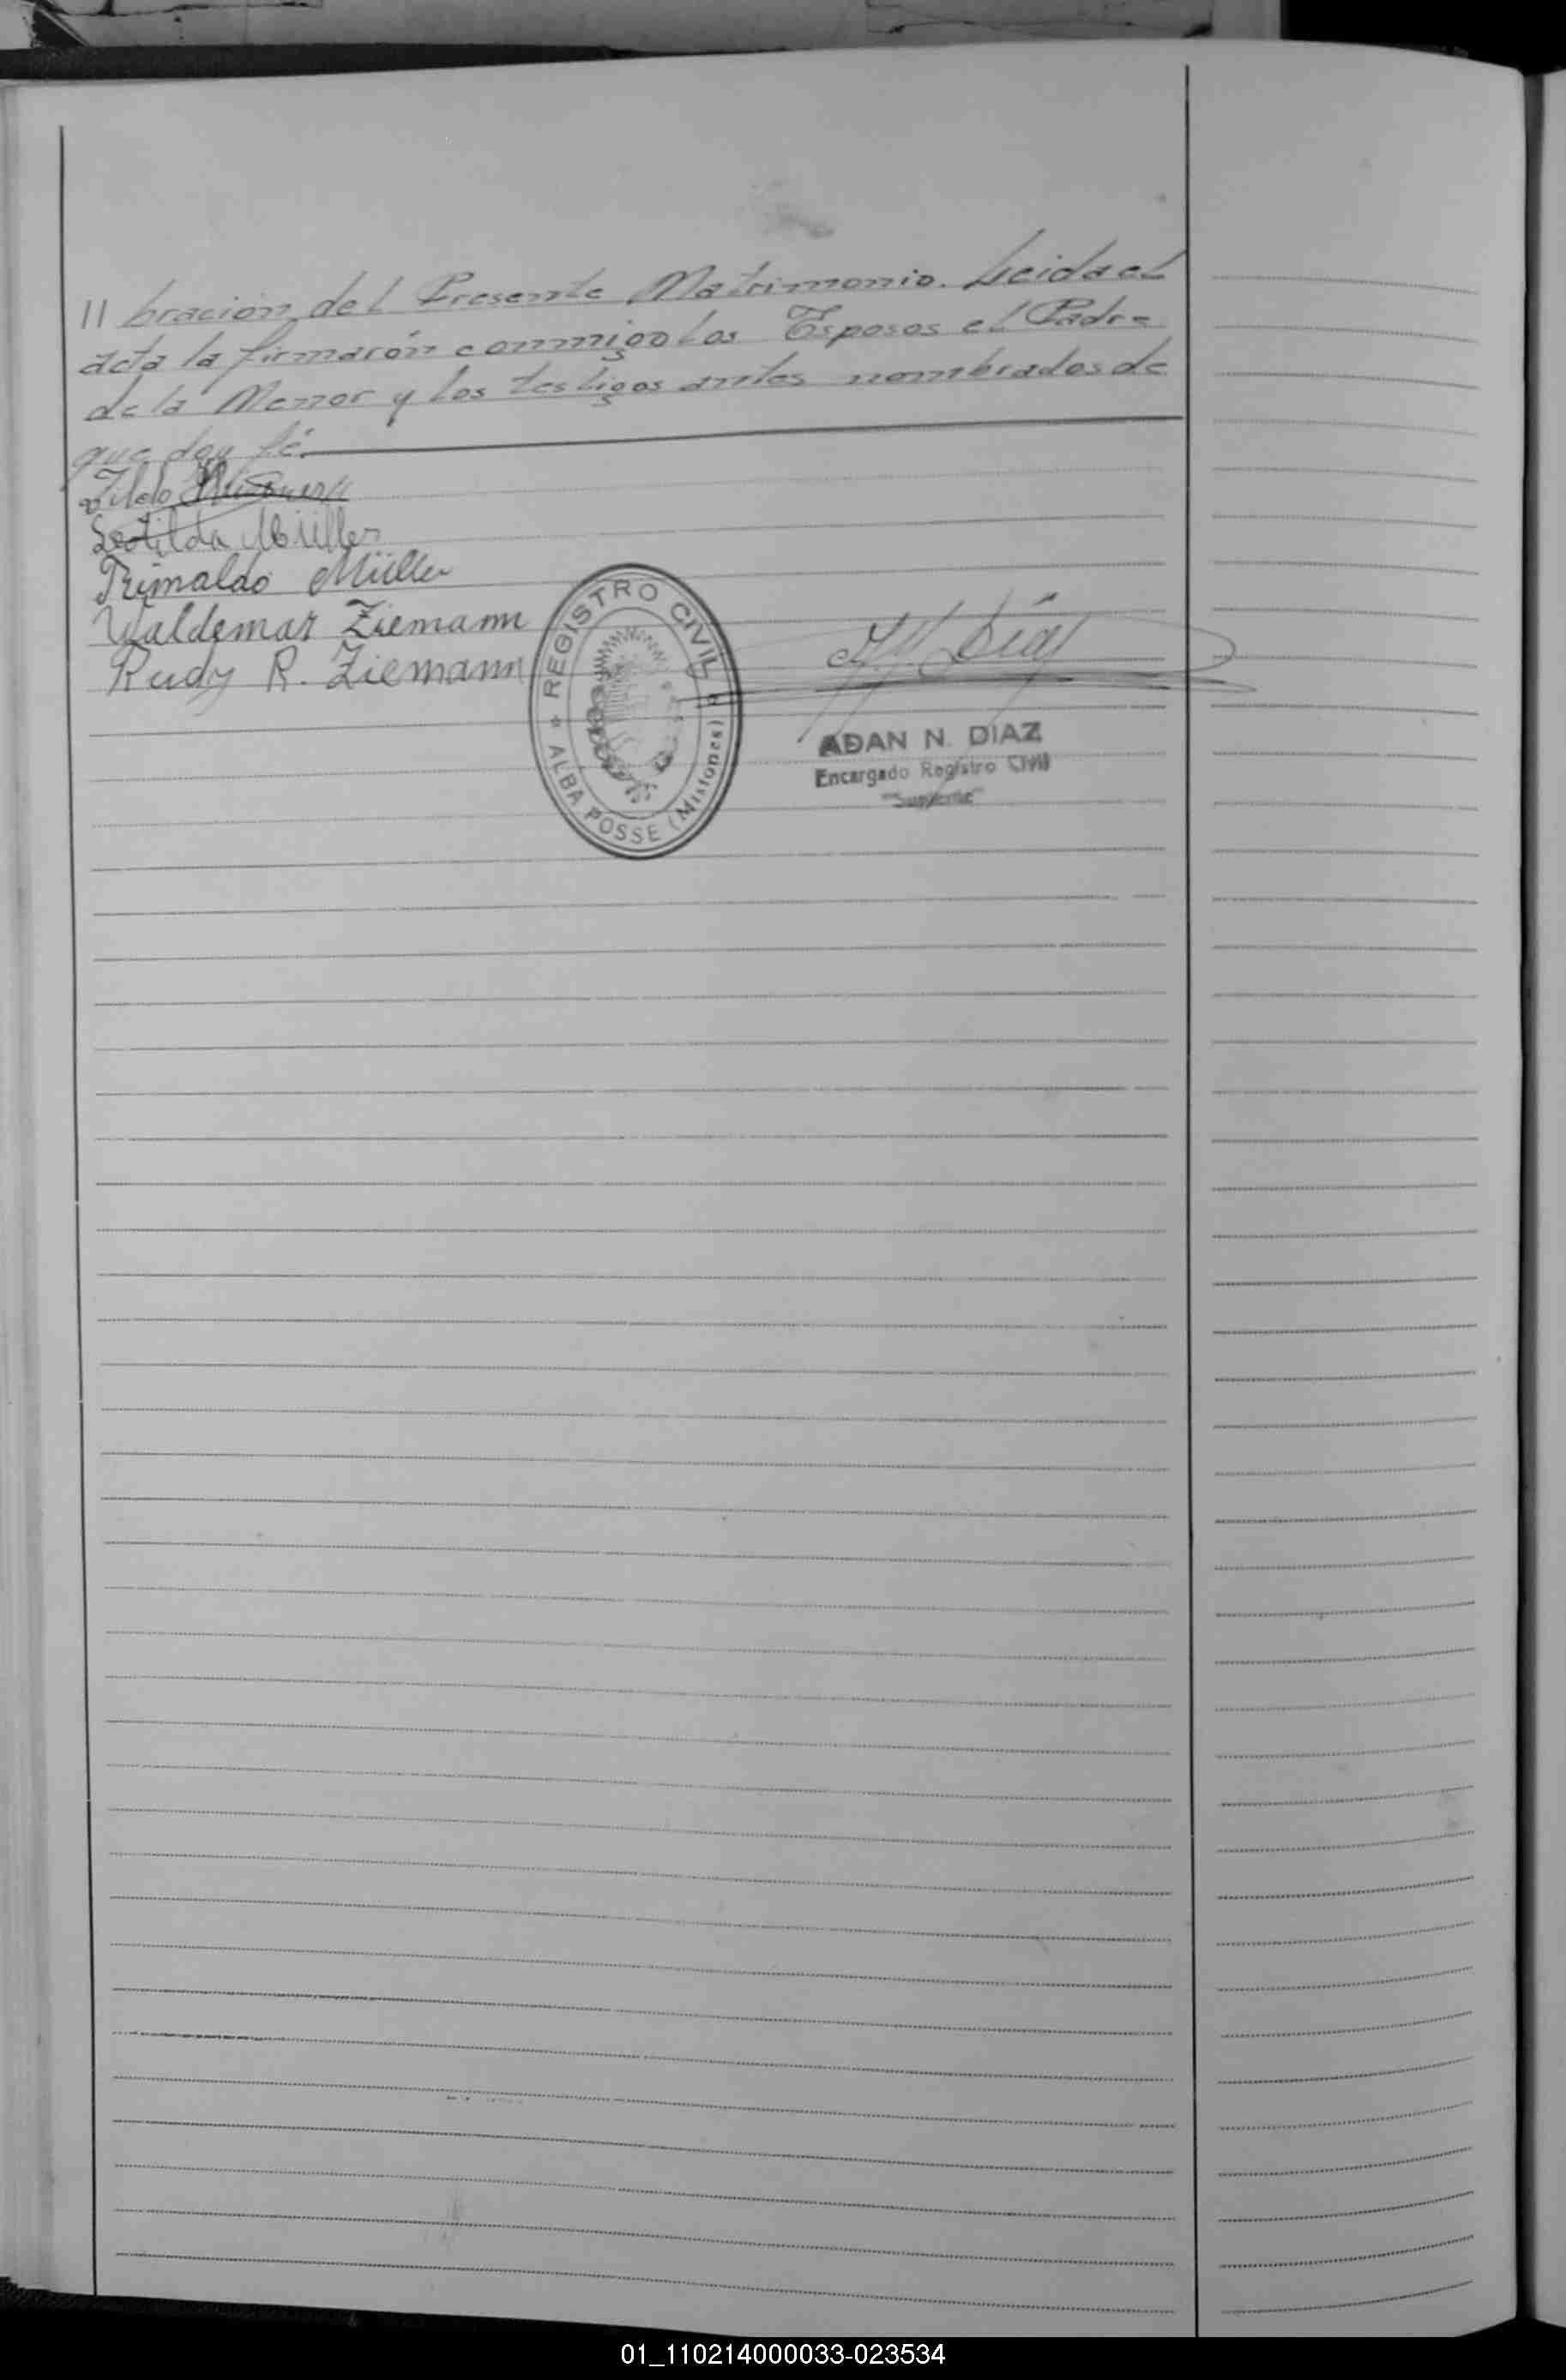 // bracion del Presente Matrimonio. Leida el
acta la firmarón conmigo los Esposos el Padre
de la Menor y los testigos antes nombrados de
que doy fé.
Leotilda Müller
Rimaldo Müller
Waldemar Ziemann
Rudy R. Ziemann
REGISTRO CIVIL
ALBA POSSE (Misiones)
Díaz
ADAN N. DIAZ
Encargado Registro Civil
"Suplente"
01_110214000033-023534